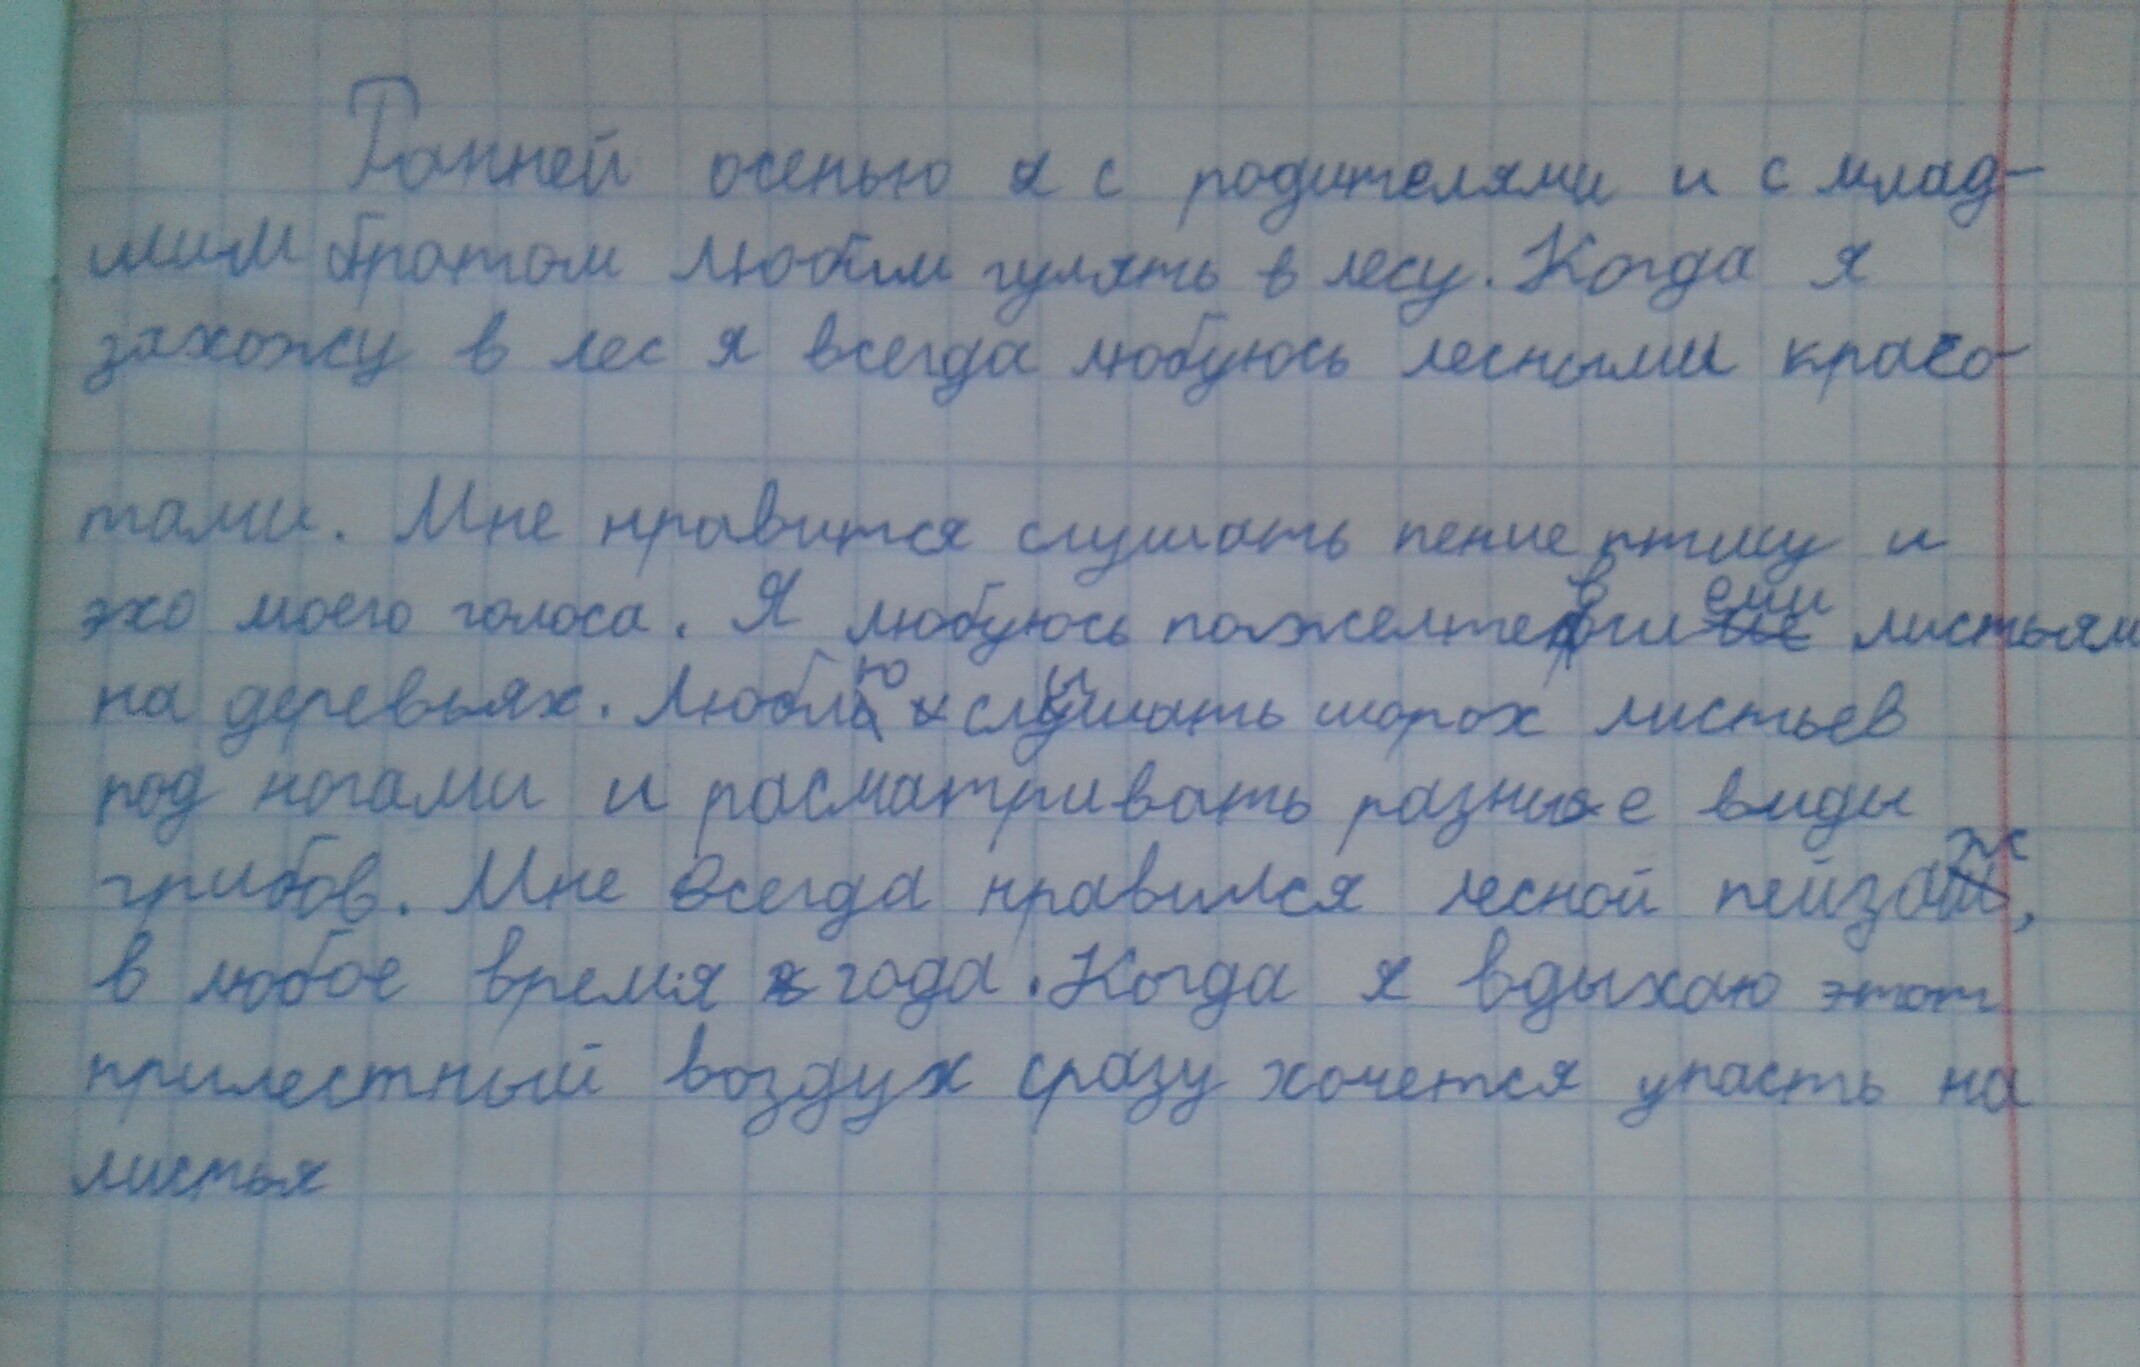 Ранней осенью я с родителями и с млад-
шим братом любим гулять в лесу. Когда я
захожу в лес я всегда любуюсь лесными красо-
тами. Мне нравится слушать пение птицу и
эхо моего голоса. Я любуюсь пожелтевшиеми листьями
на деревьях. Люблю слышать шорох листьев
под ногами и расматривать разные виды
грибов. Мне всегда нравился лесной пейзаж,
в любое время года. Когда я вдыхаю этот
прилестный воздух сразу хочется упасть на
листья